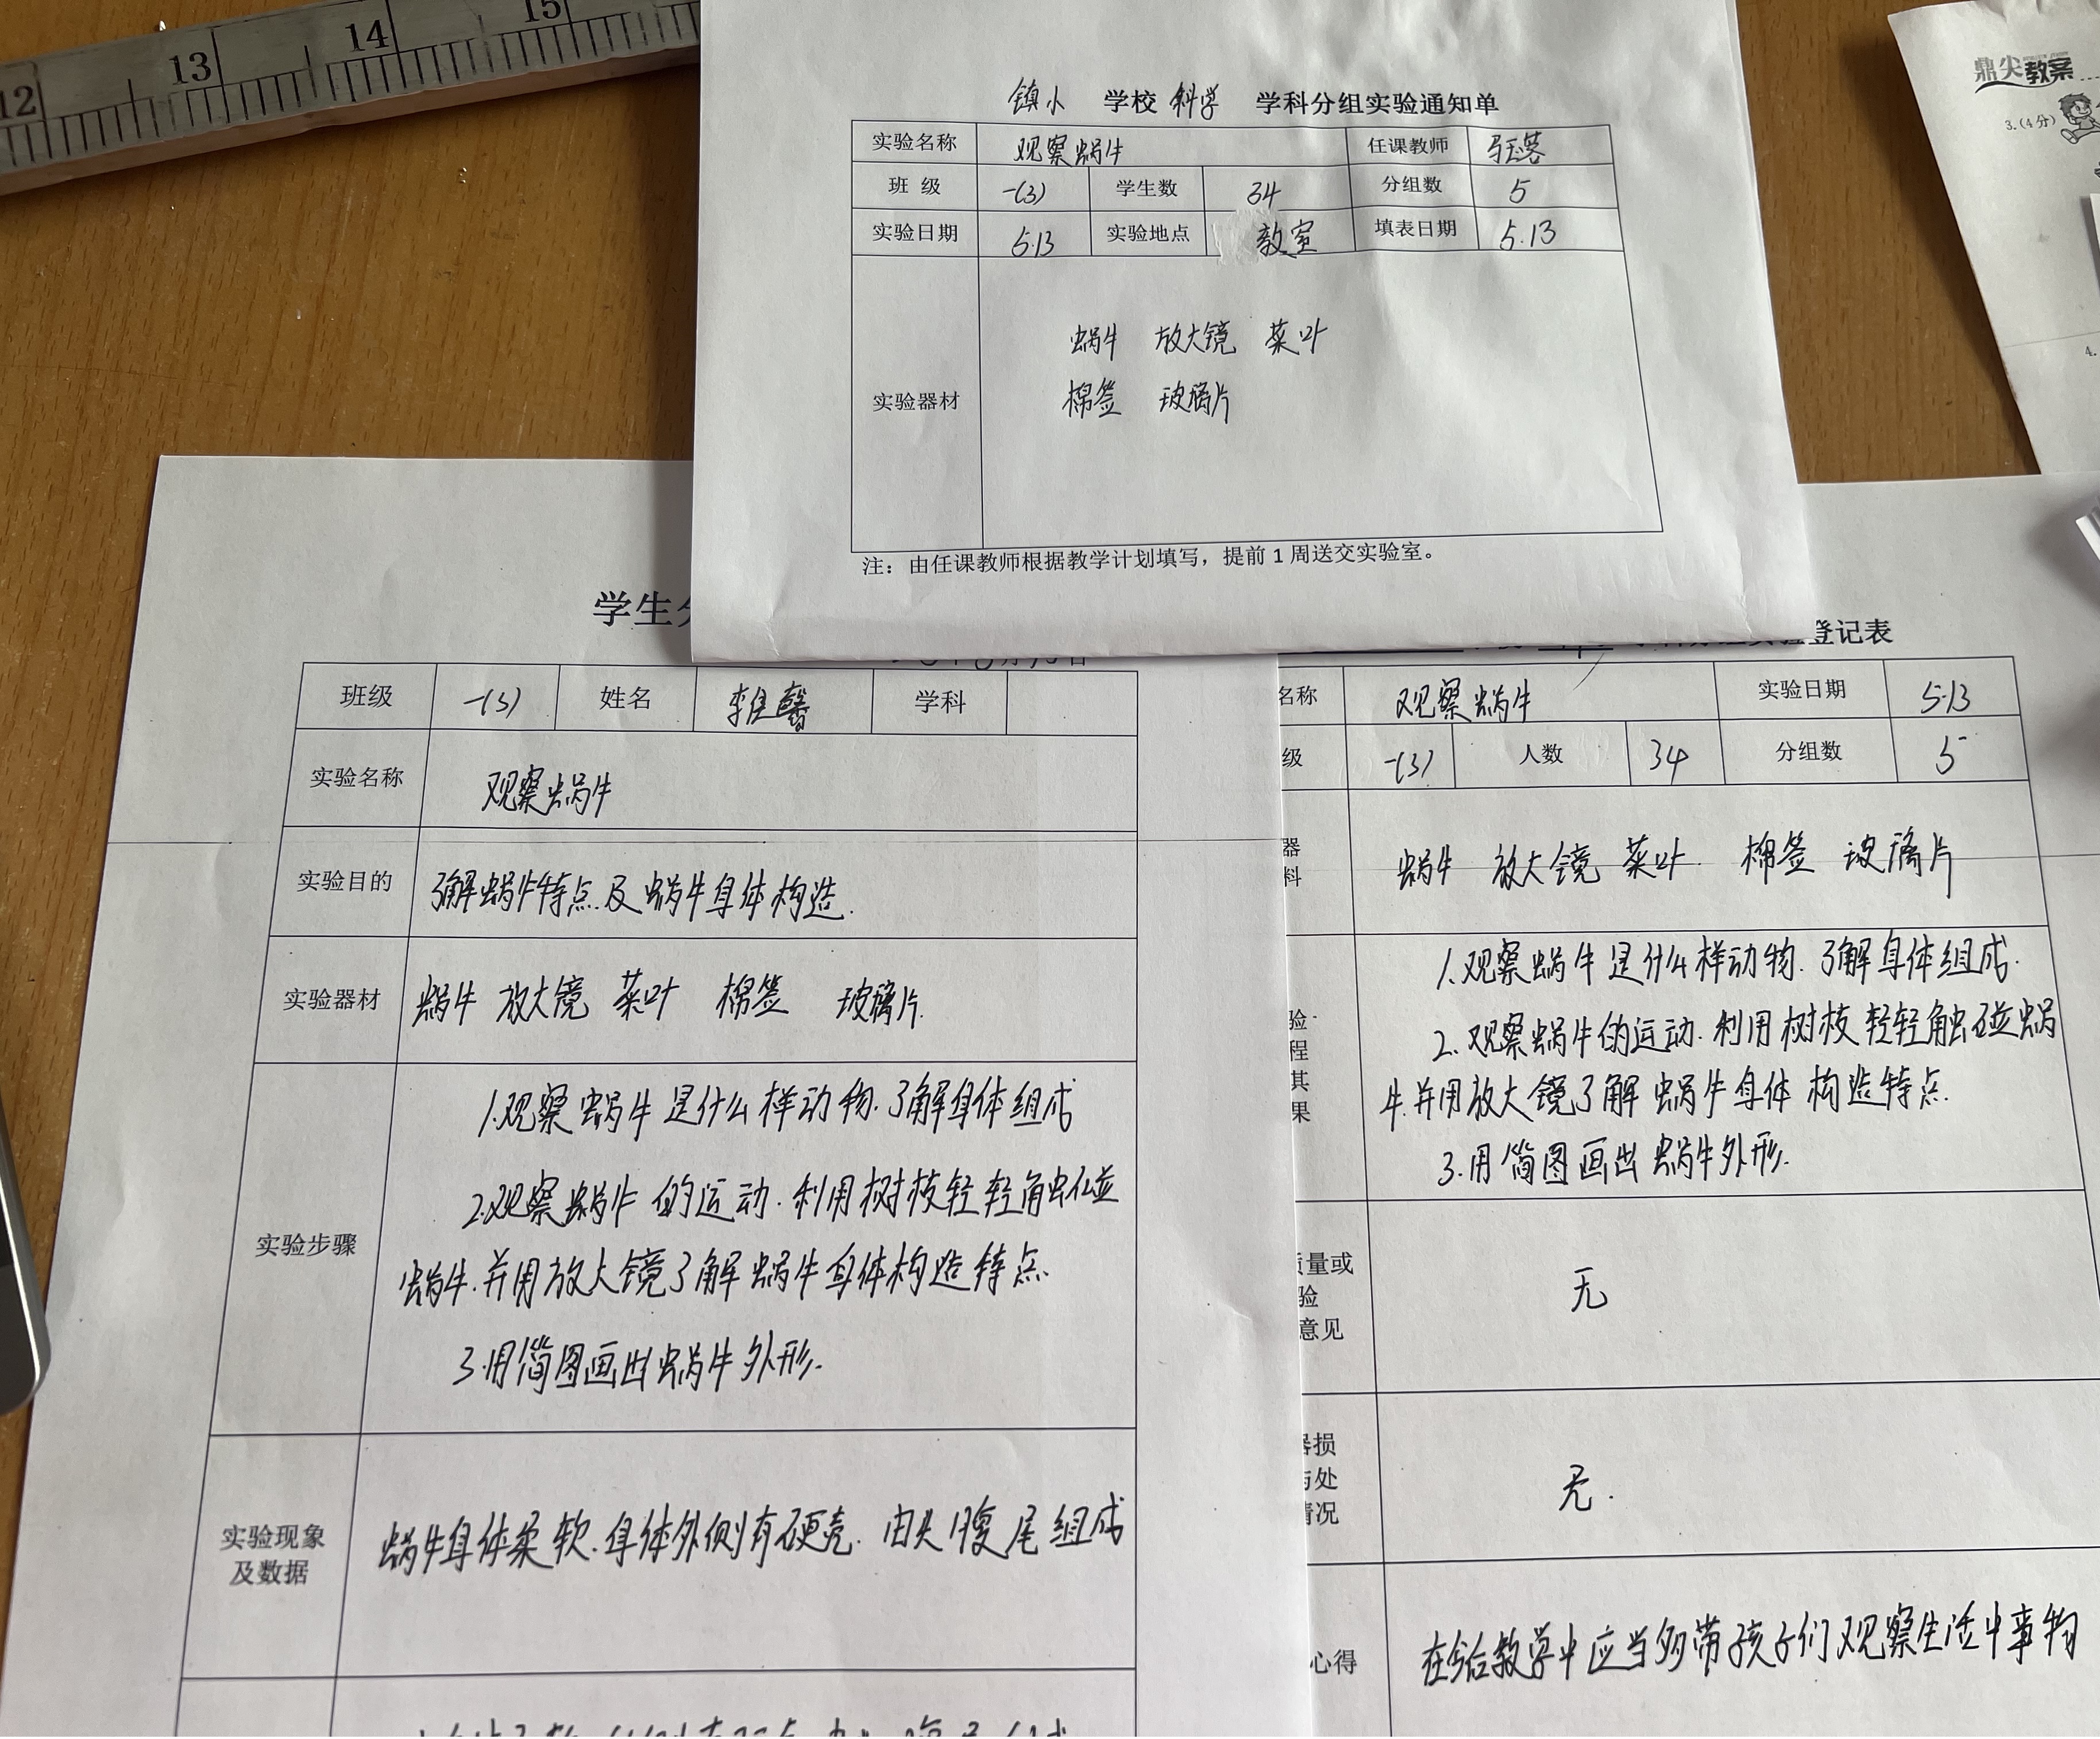 12 13 14 15
镇小 学校 科学 学科分组实验通知单
实验名称 观察蜗牛 任课教师
班 级 一(3) 学生数 34 分组数 5
实验日期 5.13 实验地点 教室 填表日期 5.13
实验器材
蜗牛 放大镜 菜叶
棉签 玻璃片
注：由任课教师根据教学计划填写，提前1周送交实验室。
鼎尖教案
3.(4分)
4.
学生
班级 一(3) 姓名 李佳馨 学科
实验名称 观察蜗牛
实验目的 了解蜗牛特点及蜗牛身体构造.
实验器材 蜗牛 放大镜 菜叶 棉签 玻璃片.
实验步骤
1.观察蜗牛是什么样动物.了解身体组成
2.观察蜗牛的运动.利用树枝轻轻触碰
蜗牛.并用放大镜了解蜗牛身体构造特点.
3.用简图画出蜗牛外形.
实验现象
及数据
蜗牛身体柔软.身体外侧有硬壳.由头腹尾组成
登记表
名称 观察蜗牛 实验日期 5.13
级 一(3) 人数 34 分组数 5
器
料
蜗牛 放大镜 菜叶 棉签 玻璃片
验
程
其
果
1.观察蜗牛是什么样动物.了解身体组成.
2.观察蜗牛的运动.利用树枝轻轻触碰蜗
牛.并用放大镜了解蜗牛身体构造特点.
3.用简图画出蜗牛外形.
质量或
验
意见
无
器损
与处
情况
无.
心得
教学中应当多带孩子们观察生活中事物